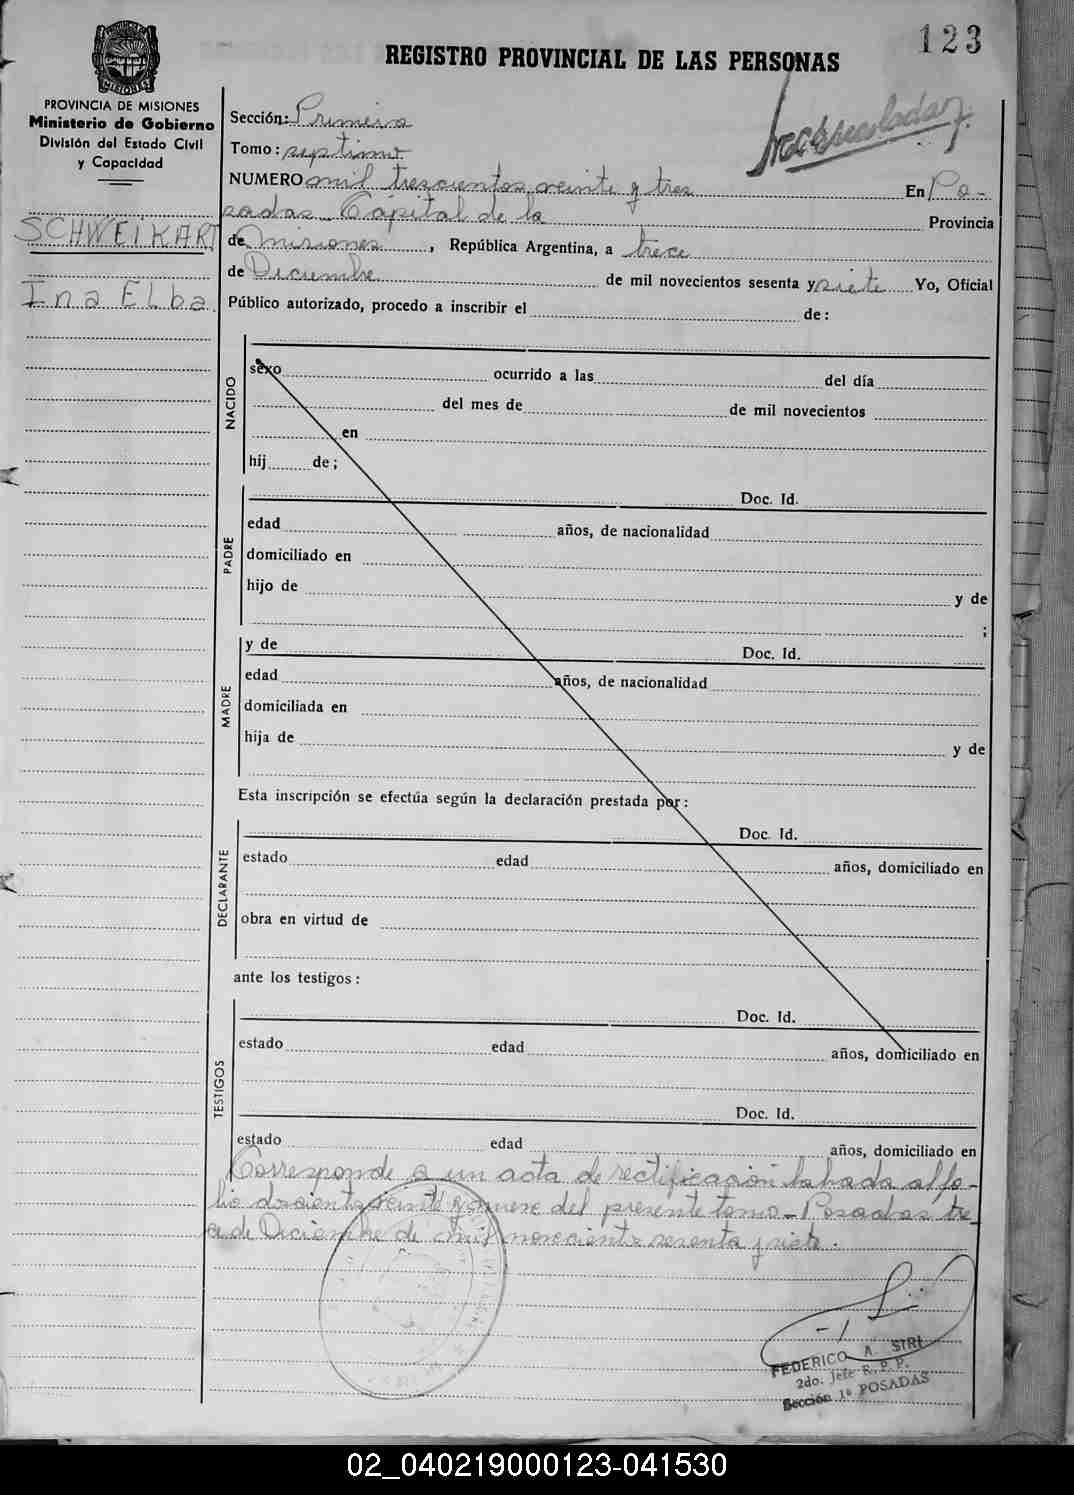 123
REGISTRO PROVINCIAL DE LAS PERSONAS
PROVINCIA DE MISIONES
Ministerio de Gobierno
División del Estado Civil
y Capacidad
SCHWEIKART
Ina ELba.
Sección: Primera
Tomo: septimo
NUMERO mil trescientos veinte y tres En Po-
sadas - Capital de la Provincia
de Misiones, República Argentina, a trece
de Diciembre de mil novecientos sesenta y siete Yo, Oficial
Público autorizado, procedo a inscribir el de:
NACIDO
sexo ocurrido a las del día
del mes de de mil novecientos
en
hij de;
PADRE
Doc. Id.
edad años, de nacionalidad
domiciliado en
hijo de y de
;
MADRE
y de Doc. Id.
edad años, de nacionalidad
domiciliada en
hija de y de
Esta inscripción se efectúa según la declaración prestada por:
DECLARANTE
Doc. Id.
estado edad años, domiciliado en
obra en virtud de
ante los testigos:
TESTIGOS
Doc. Id.
estado edad años, domiciliado en
Doc. Id.
estado edad años, domiciliado en
Corresponde a un acta de rectificación labrada al fo-
lio doscientos veinte y nueve del presente tomo - Posadas tre-
ce de Diciembre de mil novecientos sesenta y siete.
FEDERICO A. SIRI
2do. Jefe R. P. P.
Sección 1º POSADAS
02_040219000123-041530